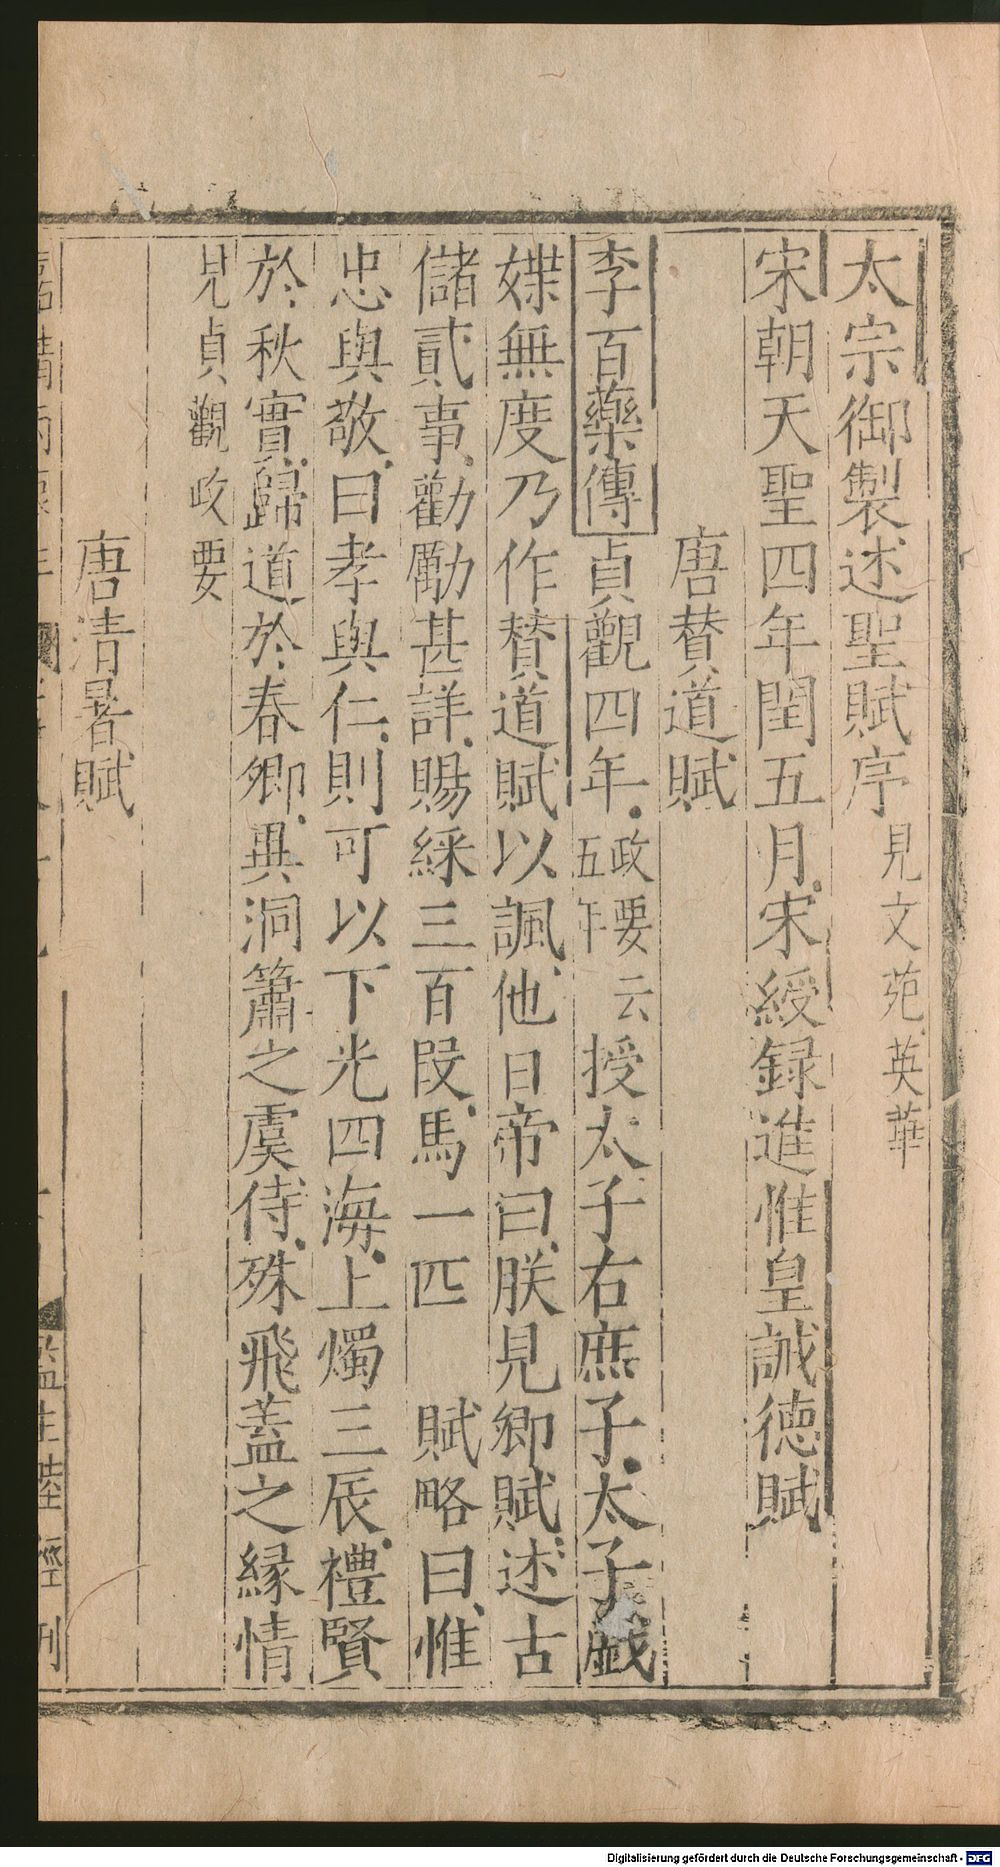 太宗御製述聖賦序見文苑英華
宋朝天聖四年閏五月宋綬録進惟皇誠德賦
唐賛道賦
李百藥傳貞觀四年政要云五年授太子右庶子太子戲
媟無度乃作賛道賦以諷他日帝曰朕見卿賦述古
儲貳事勸勵甚詳賜綵三百段馬一匹 賦略曰惟
忠與敬曰孝與仁則可以下光四海上燭三辰禮賢
於秋實歸道於春卿異洞簫之虞侍殊飛蓋之縁情
見貞觀政要
唐清暑賦
監生陸經刊
Digitalisierung gefördert durch die Deutsche Forschungsgemeinschaft - DFG